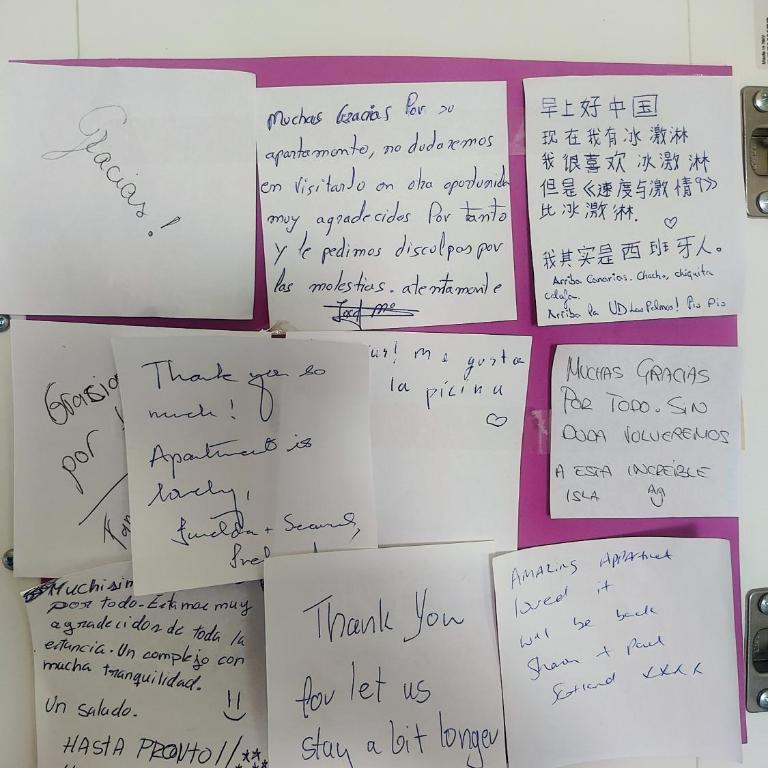 Gracias!
Muchas Gracias Por su
apartamento, no dudaremos
en visitarlo en otra oportunidad
muy agradecidos Por tanto
y le pedimos disculpas por
las molestias. atentamente
早上好中国
现在我有冰激淋
我很喜欢冰激淋
但是《速度与激情9》
比冰激淋.
♡
我其实是西班牙人。
Arriba Canarias. Chacho, chiquita
calafa.
Arriba la UD Las Palmas! Pio Pio
por
Thank you so
much!
Apartment is
lovely,
me gusta
la picina
♡
MUCHAS GRACIAS
POR TODO. SIN
DUDA VOLVEREMOS
A ESTA INCREÍBLE
ISLA
Muchisim
por todo. Estamos muy
agradecidos de toda la
estancia. Un complejo con
mucha tranquilidad.
Un saludo.
HASTA PRONTO!!
Thank You
for let us
stay a bit longer
AMAZING APPARTMENT
loved it
will be back
Sharon + Paul
Scotland xxxx